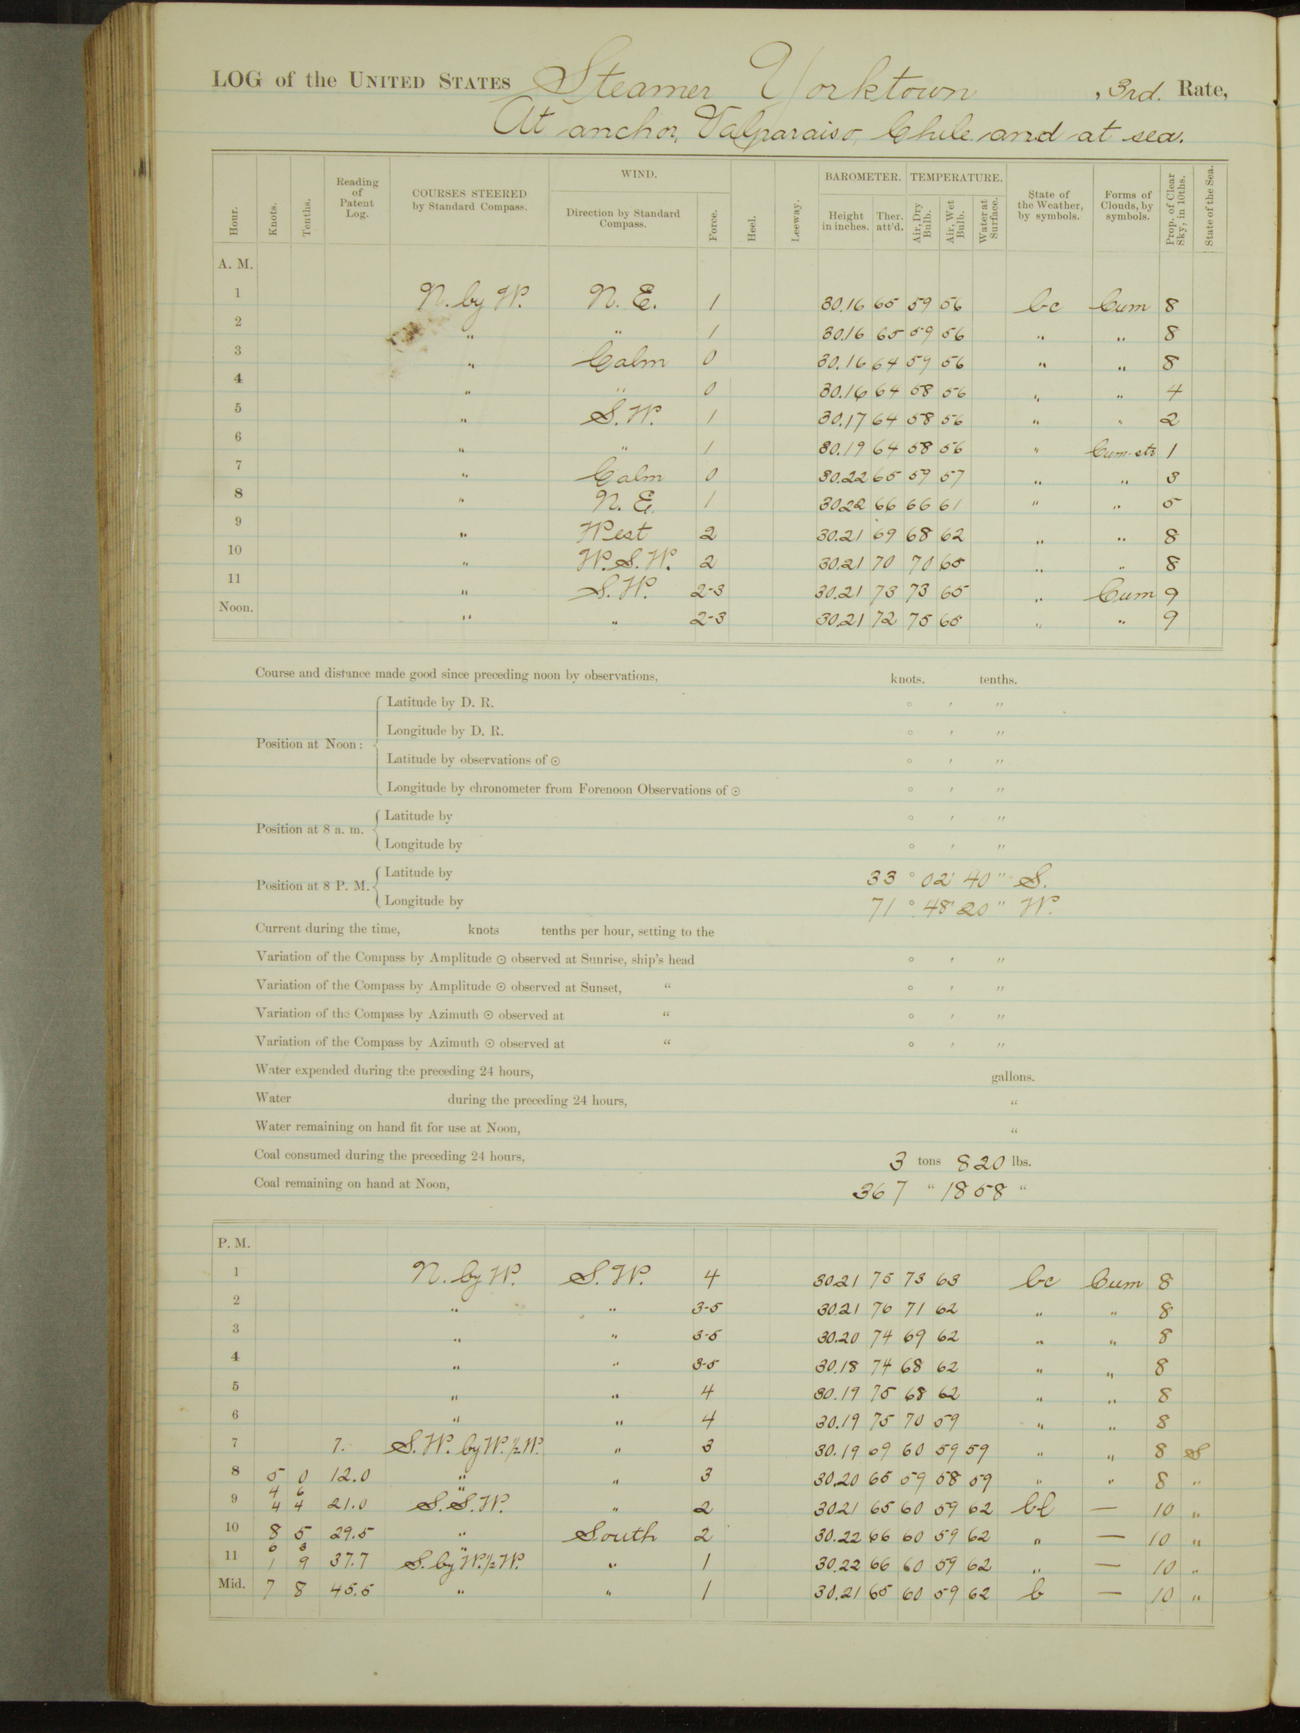 LOG of the UNITED STATES Steamer Yorktown , 3rd. Rate,
At anchor, Valparaiso, Chile and at sea.
WIND. BAROMETER. TEMPERATURE.
Hour. Knots. Tenths. Reading of Patent Log. COURSES STEERED by Standard Compass. Direction by Standard Compass. Force. Heel. Leeway. Height in inches. Ther. att'd. Air, Dry Bulb. Air, Wet Bulb. Water at Surface. State of the Weather, by symbols. Forms of Clouds, by symbols. Prop. of Clear Sky, in 10ths. State of the Sea.
A. M.
1 N. by W. N. E. 1 30.16 65 59 56 bc Cum 8
2 " " 1 30.16 65 59 56 " " 8
3 " Calm 0 30.16 64 59 56 " " 8
4 " " 0 30.16 64 58 56 " " 4
5 " S.W. 1 30.17 64 58 56 " " 2
6 " " 1 30.19 64 58 56 " Cum-str 1
7 " Calm 0 30.22 65 59 57 " " 3
8 " N. E. 1 30.22 66 66 61 " " 5
9 " West 2 30.21 69 68 62 " " 8
10 " W.S.W. 2 30.21 70 70 65 " " 8
11 " S.W. 2-3 30.21 73 73 65 " Cum 9
Noon. " " 2-3 30.21 72 75 65 " " 9
Course and distance made good since preceding noon by observations, knots. tenths.
Position at Noon: Latitude by D. R. ° ' "
Longitude by D. R. ° ' "
Latitude by observations of ☉ ° ' "
Longitude by chronometer from Forenoon Observations of ☉ ° ' "
Position at 8 a. m. Latitude by ° ' "
Longitude by ° ' "
Position at 8 P. M. Latitude by 33 ° 02' 40" S.
Longitude by 71 ° 48' 20" W.
Current during the time, knots tenths per hour, setting to the
Variation of the Compass by Amplitude ☉ observed at Sunrise, ship's head ° ' "
Variation of the Compass by Amplitude ☉ observed at Sunset, " ° ' "
Variation of the Compass by Azimuth ☉ observed at " ° ' "
Variation of the Compass by Azimuth ☉ observed at " ° ' "
Water expended during the preceding 24 hours, gallons.
Water during the preceding 24 hours, "
Water remaining on hand fit for use at Noon, "
Coal consumed during the preceding 24 hours, 3 tons 820 lbs.
Coal remaining on hand at Noon, 367 " 1858 "
P. M.
1 N. by W. S. W. 4 30.21 75 73 63 bc Cum 8
2 " " 3-5 30.21 76 71 62 " " 8
3 " " 3-5 30.20 74 69 62 " " 8
4 " " 3-5 30.18 74 68 62 " " 8
5 " " 4 30.19 75 68 62 " " 8
6 " " 4 30.19 75 70 59 " " 8
7 7. S.W. by W. ½ W. " 3 30.19 69 60 59 59 " " 8 S
8 5 0 12.0 " " 3 30.20 65 59 58 59 " " 8 "
4 6 "
9 4 4 21.0 S.S.W. " 2 30.21 65 60 59 62 bc — 10 "
10 8 5 29.5 " South 2 30.22 66 60 59 62 " — 10 "
6 3 "
11 1 9 37.7 S. by W. ½ W. " 1 30.22 66 60 59 62 " — 10 "
Mid. 7 8 45.5 " " 1 30.21 65 60 59 62 b — 10 "